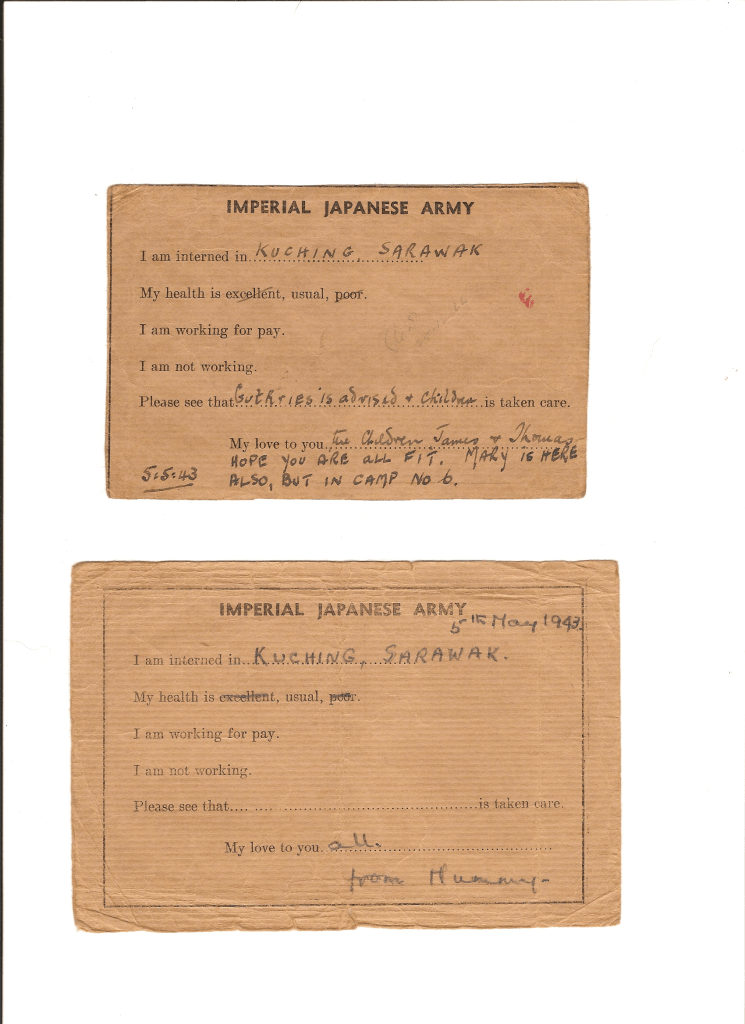 IMPERIAL JAPANESE ARMY
I am interned in KUCHING, SARAWAK
My health is excellent, usual, poor.
I am working for pay.
I am not working.
Please see that Guthries is advised + Children is taken care.
My love to you the Children James + Thomas.
HOPE YOU ARE ALL FIT. MARY IS HERE
5:5:43 ALSO, BUT IN CAMP No 6.
IMPERIAL JAPANESE ARMY
5th May 1943.
I am interned in KUCHING, SARAWAK.
My health is excellent, usual, poor.
I am working for pay.
I am not working.
Please see that is taken care.
My love to you all.
from Mummy.